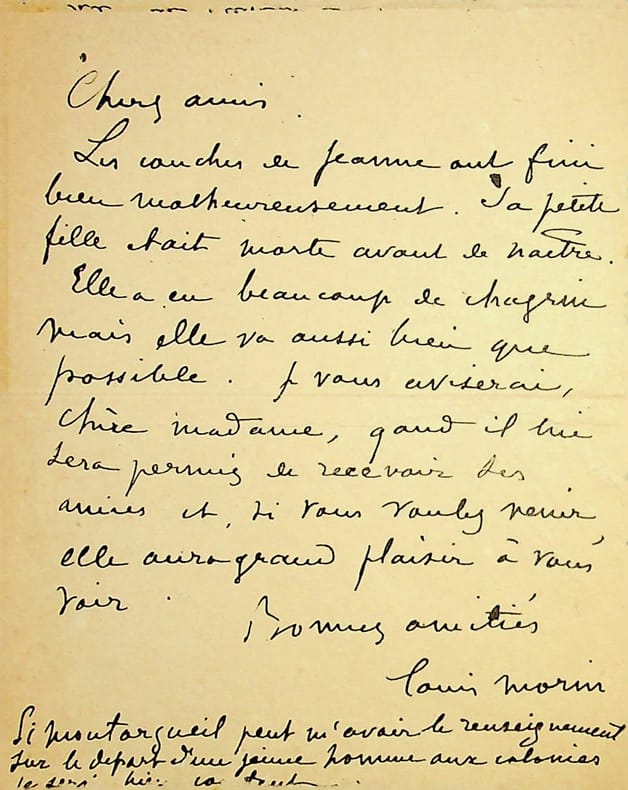 Chers amis.
Les couches de Jeanne ont fini
bien malheureusement. Sa petite
fille était morte avant de naître.
Elle a eu beaucoup de chagrin
mais elle va aussi bien que
possible. Je vous aviserai,
chère madame, quand il lui
sera permis de recevoir ses
amies et, si vous voulez venir,
elle aura grand plaisir à vous
voir.
Bonnes amitiés
Louis Morin
Si Montorgueil peut m'avoir le renseignement
sur le départ d'un jeune homme aux colonies